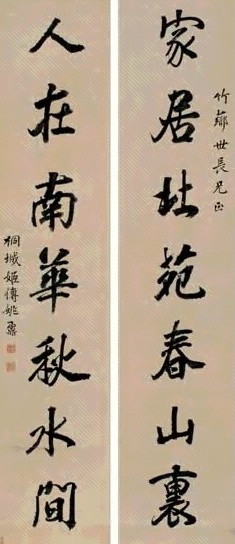 竹鄉世長兄正
家居杜苑春山裏
人在南華秋水間
桐城姬傳姚鼐